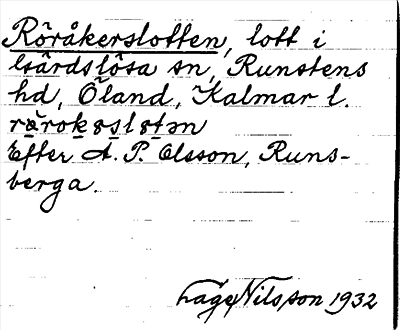 Röråkerslotten, lott i
Gärdslösa sn, Runstens
hd, Öland, Kalmar l.
Efter A. P. Olsson, Runs-
berga.
Lage Nilsson 1932